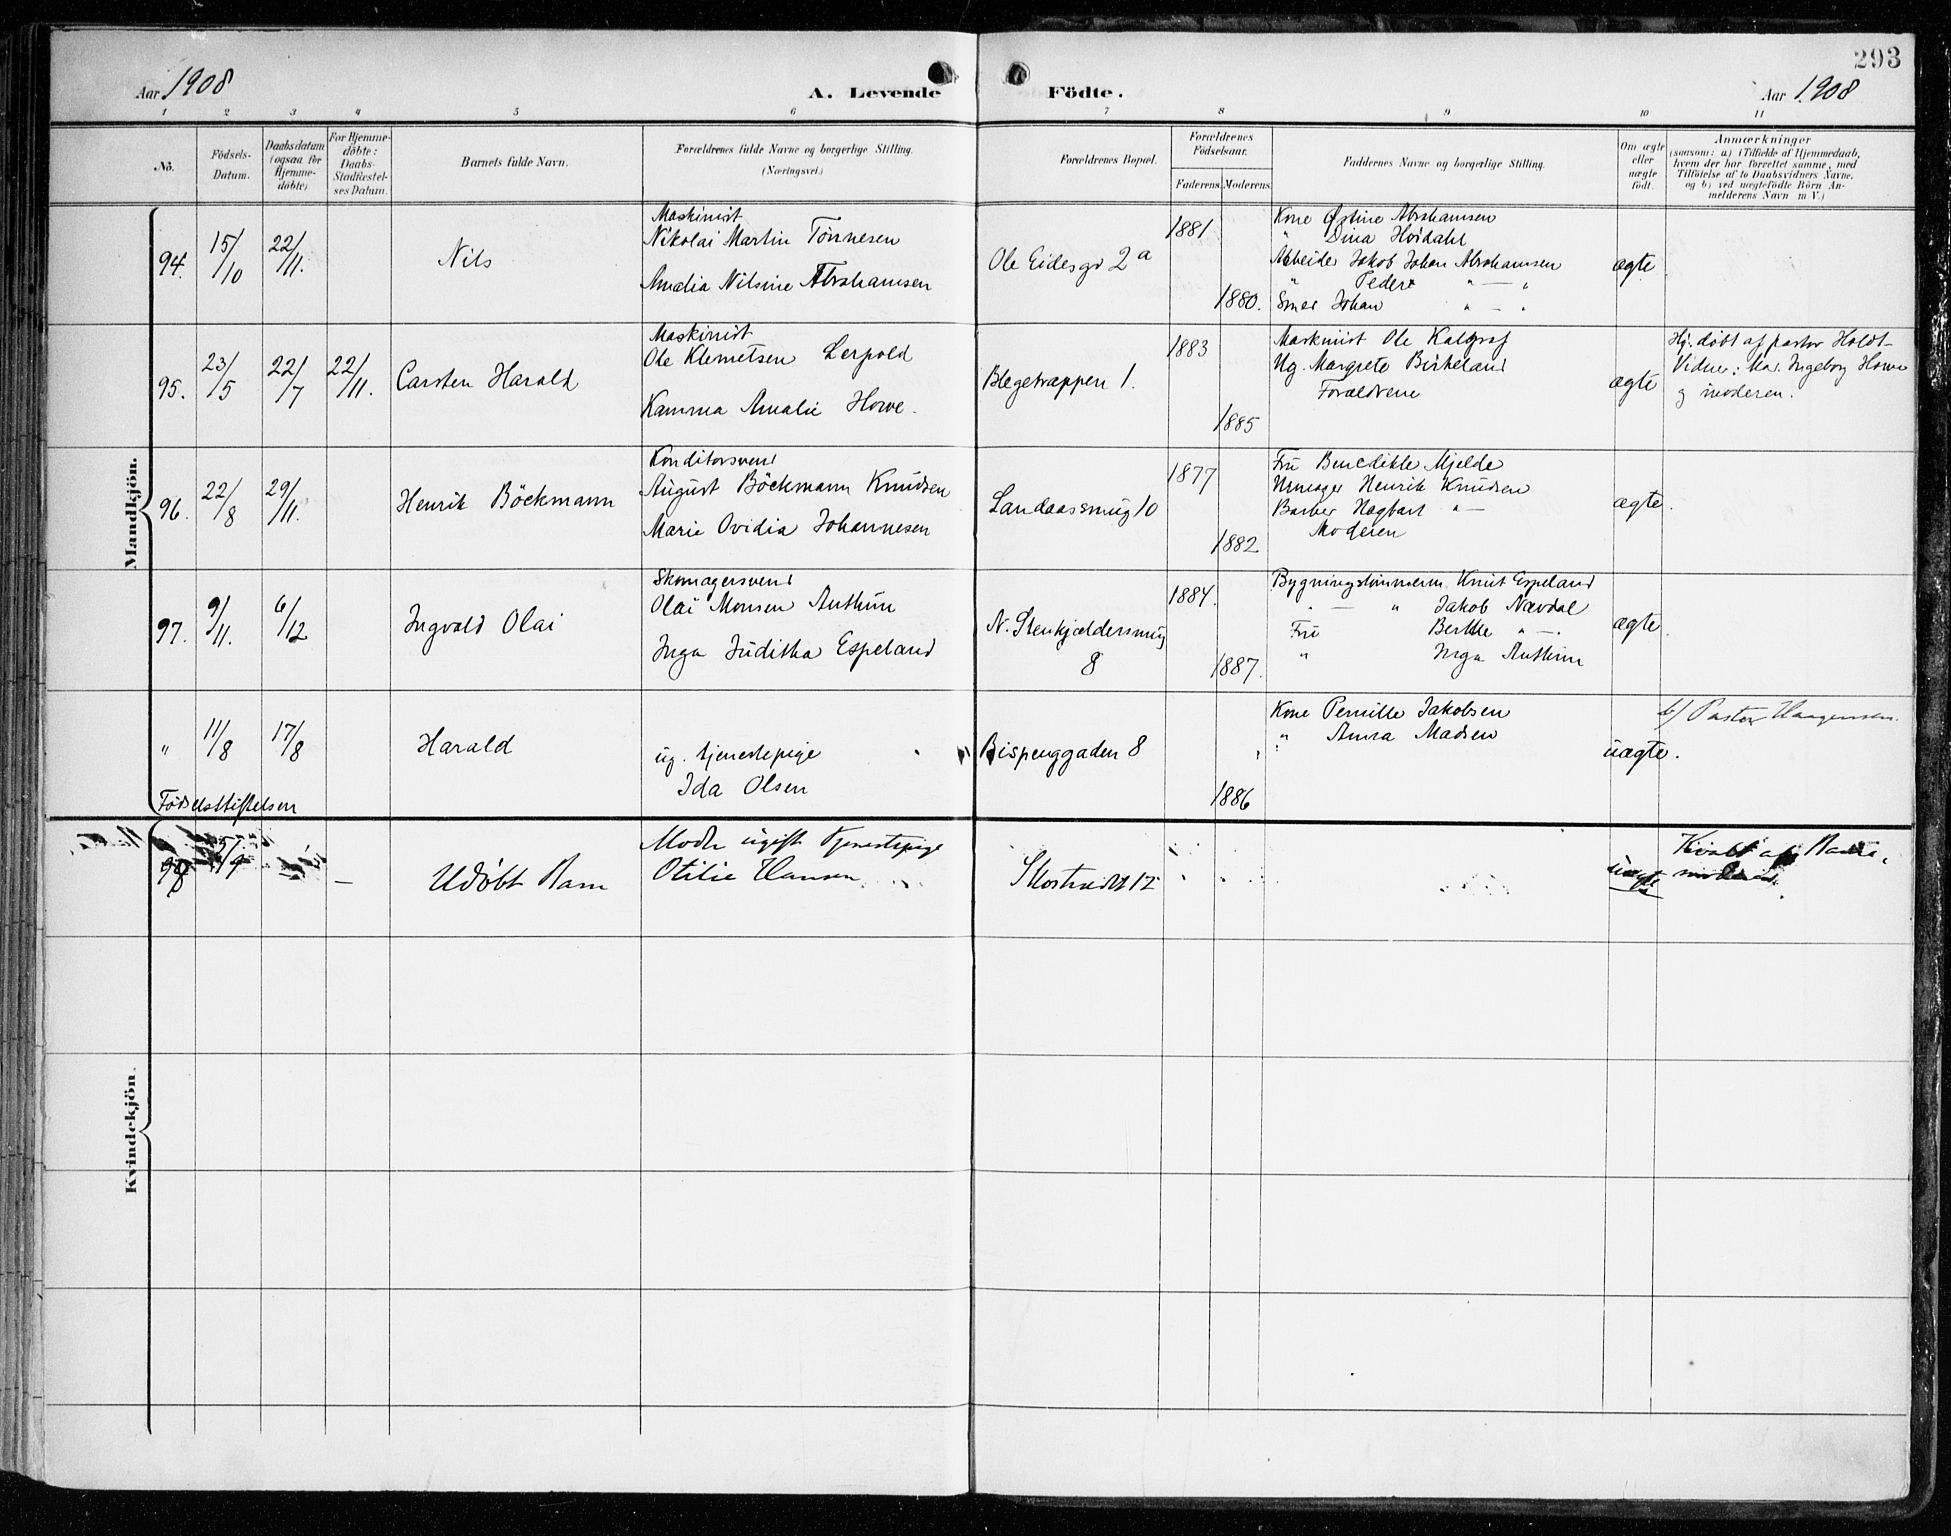 293
Aar 1908
A. Levende Födte.
Aar 1908
1 2 3 4 5 6 7 8 9 10 11
No.
Födsels-Datum.
Daabsdatum (ogsaa for Hjemme-döbte)
For Hjemme-döbte: Daabs-Stadfæstel-ses Datum.
Barnets fulde Navn.
Forældrenes fulde Navne og borgerlige Stilling.
(Næringsvei.)
Forældrenes Bopæl.
Forældrenes Födselsaar.
Faderens. Moderens.
Faddernes Navne og borgerlige Stilling.
Om ægte eller uægte födt.
Anmærkninger
(saasom: a) i Tilfælde af Hjemmedaab,
hvem der har forrettet samme, med
Tilföielse af to Daabsvidners Navne,
og b) ved uægtefödte Börn An-
melderens Navn m. V.)
Mandkjön.
94. 15/10 22/11. Nils
Maskinist
Nikolai Martin Tönnesen
Amalia Nilsine Abrahamsen
Ole Eidesgr 2a
1881
1880.
Kone Østine Abrahamsen
" Dina Høidahl
Arbeider Jakob Johan Abrahamsen
" Peder " — "
Smed Johan " — "
ægte
95. 23/5 22/7 22/11. Carsten Harald
Maskinist
Ole Klemetsen Lerpold
Kamma Amalie Howe.
Blegetrappen 1.
1883
1885
Maskinist Ole Kalgraf
Ug. Margrete Birkeland
Forældrene
ægte
Hj. döbt af pastor Holdt-
Vidne: Mad. Ingeborg Howe
og moderen.
96. 22/8 29/11. Henrik Böckmann
Konditorsvend
August Böckmann Knudsen
Marie Ovidia Johannesen
Landaassmug 10
1877
1882
Fru Benedikte Mjelde
Urmager Henrik Knudsen
Barber Hagbart " —
Moderen
ægte.
97. 9/11. 6/12 Ingvald Olai
Skomagersvend
Olai Monsen Anthun
Inga Juditha Espeland
N. Stenkjældersmug
8
1884.
1887.
Bygningstømmerm Knut Espeland
" — " Jakob Nævdal
Fru Berthe " — .
" Inga Anthun
ægte.
" 11/8 17/8 Harald
ug. tjenestepige
Ida Olsen
Bispenggaden 8
1886
Kone Pernille Jakobsen
" Anna Madsen
uægte.
b/ Pastor Haagensen.
Födselsstiftelsen
Kvindekjön.
98 /9 — — Udöbt Barn
Moder ugift Tjenestepige
Otilie Hansen
Skostrædet 12
uægte
Kvalt af Barne-
moderen.